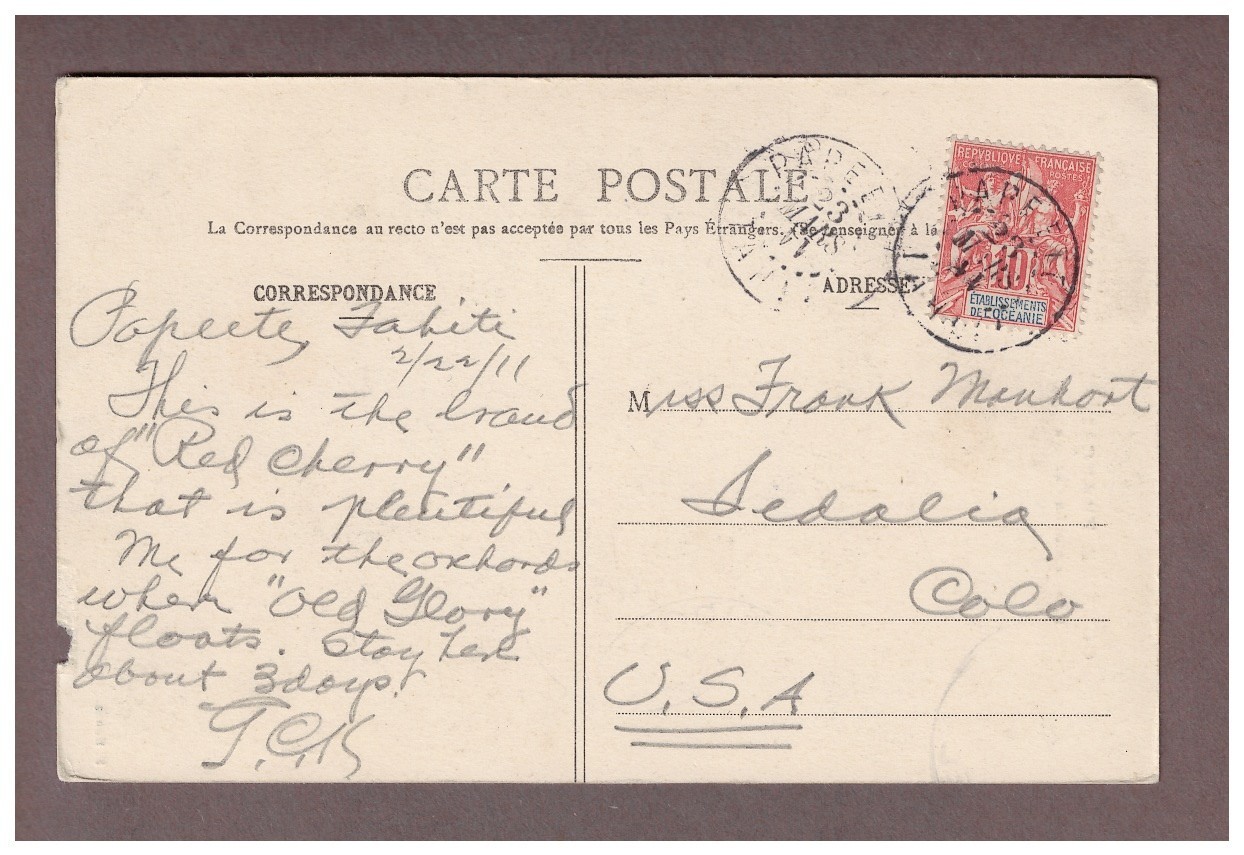 CARTE POSTALE
La Correspondance au recto n'est pas acceptée par tous les Pays Étrangers. (Se renseigner à la
CORRESPONDANCE
ADRESSE
PAPEETE
23
MARS
11
TAHITI
REPUBLIQUE FRANÇAISE
POSTES
10
ÉTABLISSEMENTS
DE L'OCÉANIE
PAPEETE
TAHITI
Papeete, Tahiti
2/22/11
This is the brand
of "Red Cherry"
that is plentiful
Me for the orchards
where "Old Glory"
floats. Stay here
about 3 days.
Miss Frank Manhart
Sedalia
Colo
U.S.A